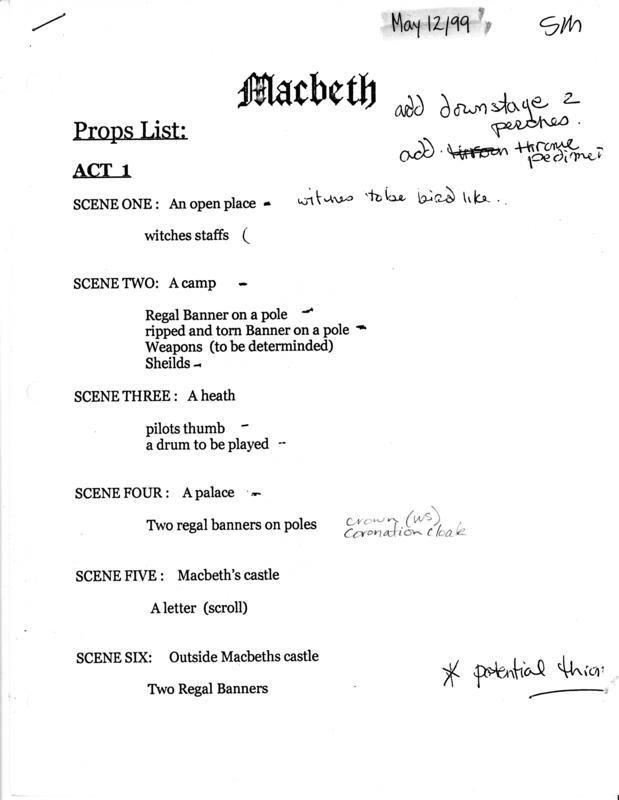 May 12/99
SM
Macbeth
add downstage 2
perches.
add throne
Props List:
ACT 1
SCENE ONE : An open place - witches to be bird like..
witches staffs (
SCENE TWO: A camp -
Regal Banner on a pole -
ripped and torn Banner on a pole -
Weapons (to be determinded)
Sheilds -
SCENE THREE : A heath
pilots thumb -
a drum to be played -
SCENE FOUR : A palace -
Two regal banners on poles
crown (WS)
Coronation cloak
SCENE FIVE : Macbeth's castle
A letter (scroll)
SCENE SIX: Outside Macbeths castle
* potential
Two Regal Banners